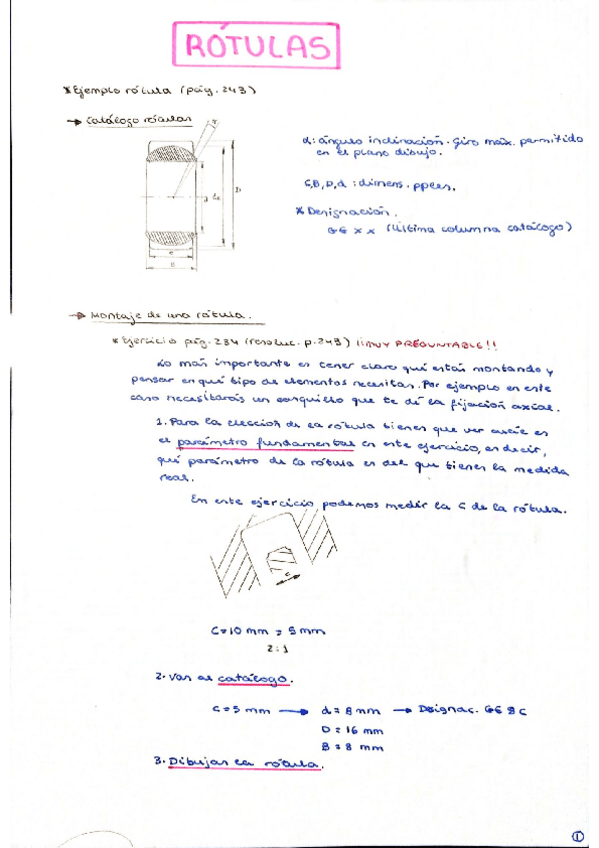 RÓTULAS
* Ejemplo rótula (pág. 243)
→ Catálogo rótulas
α
d
D
C
B
α: ángulo inclinación. Giro máx. permitido
en el plano dibujo.
C, B, D, d : dimens. ppales.
* Designación.
GE x x (última columna catálogo)
→ Montaje de una rótula.
* Ejercicio pág. 234 (resoluc. p. 243) ¡¡MUY PREGUNTABLE!!
Lo más importante es tener claro qué estás montando y
pensar en qué tipo de elementos necesitas. Por ejemplo en este
caso necesitarás un casquillo que te dé la fijación axial.
1. Para la elección de la rótula tienes que ver cuál es
el parámetro fundamental en este ejercicio, es decir,
qué parámetro de la rótula es del que tienes la medida
real.
En este ejercicio podemos medir la C de la rótula.
C
C = 10 mm = 5 mm
2:1
2. Vas al catálogo.
C = 5 mm → d = 8 mm → Designac. GE 8 C
D = 16 mm
B = 8 mm
3. Dibujas la rótula.
1